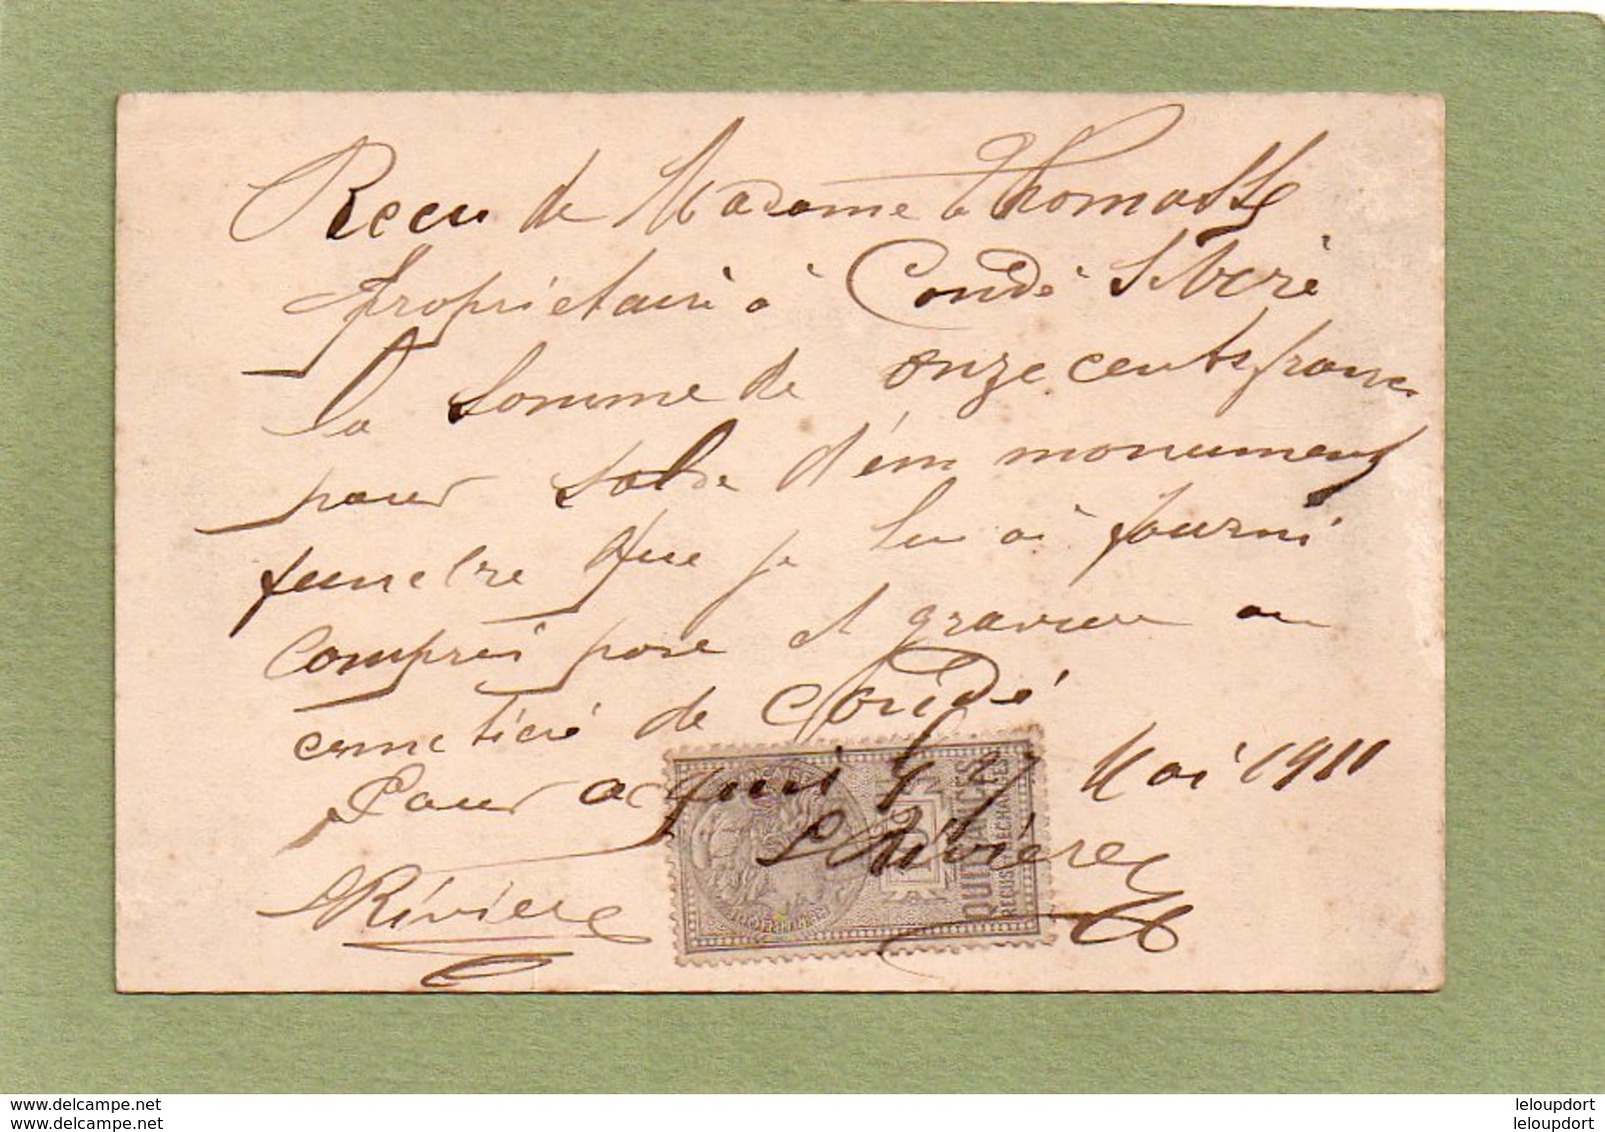 Recu de Madame Thomasse
propriétaire à Condé s Vère
la somme de onze cents francs
pour solde d'un monument
funebre que je lui ai fourni
compris pose et gravure au
cemetière de Condé
Pour acquis le 27 Mai 1911
Rivière
Rivière
QUITTANCES
REÇUS & DÉCHARGES
www.delcampe.net
www.delcampe.net
leloupdort
leloupdort